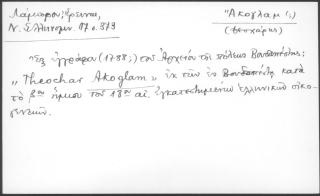 Λάμπρου, Έρευναι,
Ν. Ἑλληνομν. 17 σ. 373
"Ἀκογλαμ (;)
(Θεοχάρης)
Ἐξ ἐγγράφου (1788;) τοῦ Ἀρχείου τῆς πόλεως Βουδαπέστης:
"Theochar Akoglam" ἐκ τῶν ἐν Βουδαπέστῃ κατὰ
τὸ βον ἥμισυ τοῦ 18ου αἰ. ἐγκατεστημένων ἑλληνικῶν οἰκο-
γενειῶν.